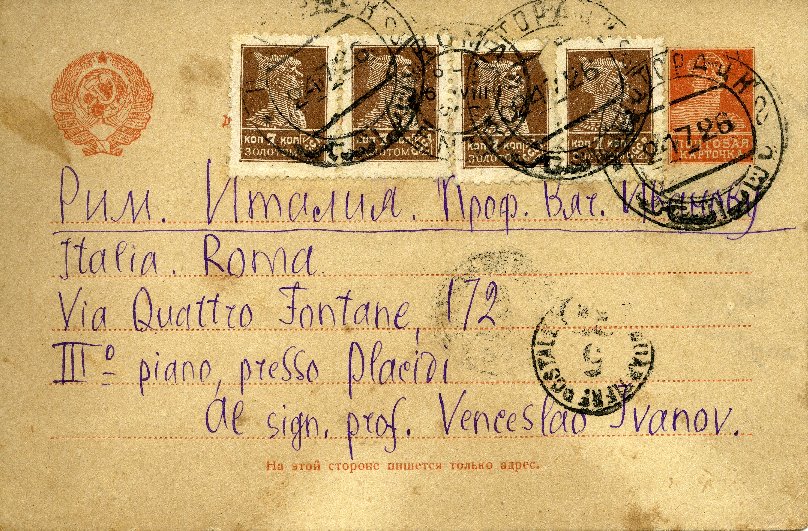 КОП 7 КОП
ЗОЛОТОМ
КОП 7 КОП
ЗОЛОТОМ
КОП 7 КОП
ЗОЛОТОМ
КОП 7 КОП
ЗОЛОТОМ
ПОЧТОВАЯ
КАРТОЧКА
Рим. Италия. Проф. Вяч. Иванову
Italia. Roma
Via Quattro Fontane, 172
IIIº piano, presso Placidi
Al sign. prof. Venceslao Ivanov.
5
POSTALE
На этой стороне пишется только адрес.